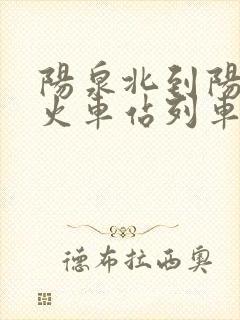 陽泉北到陽
火車佔列車
德布拉西奧